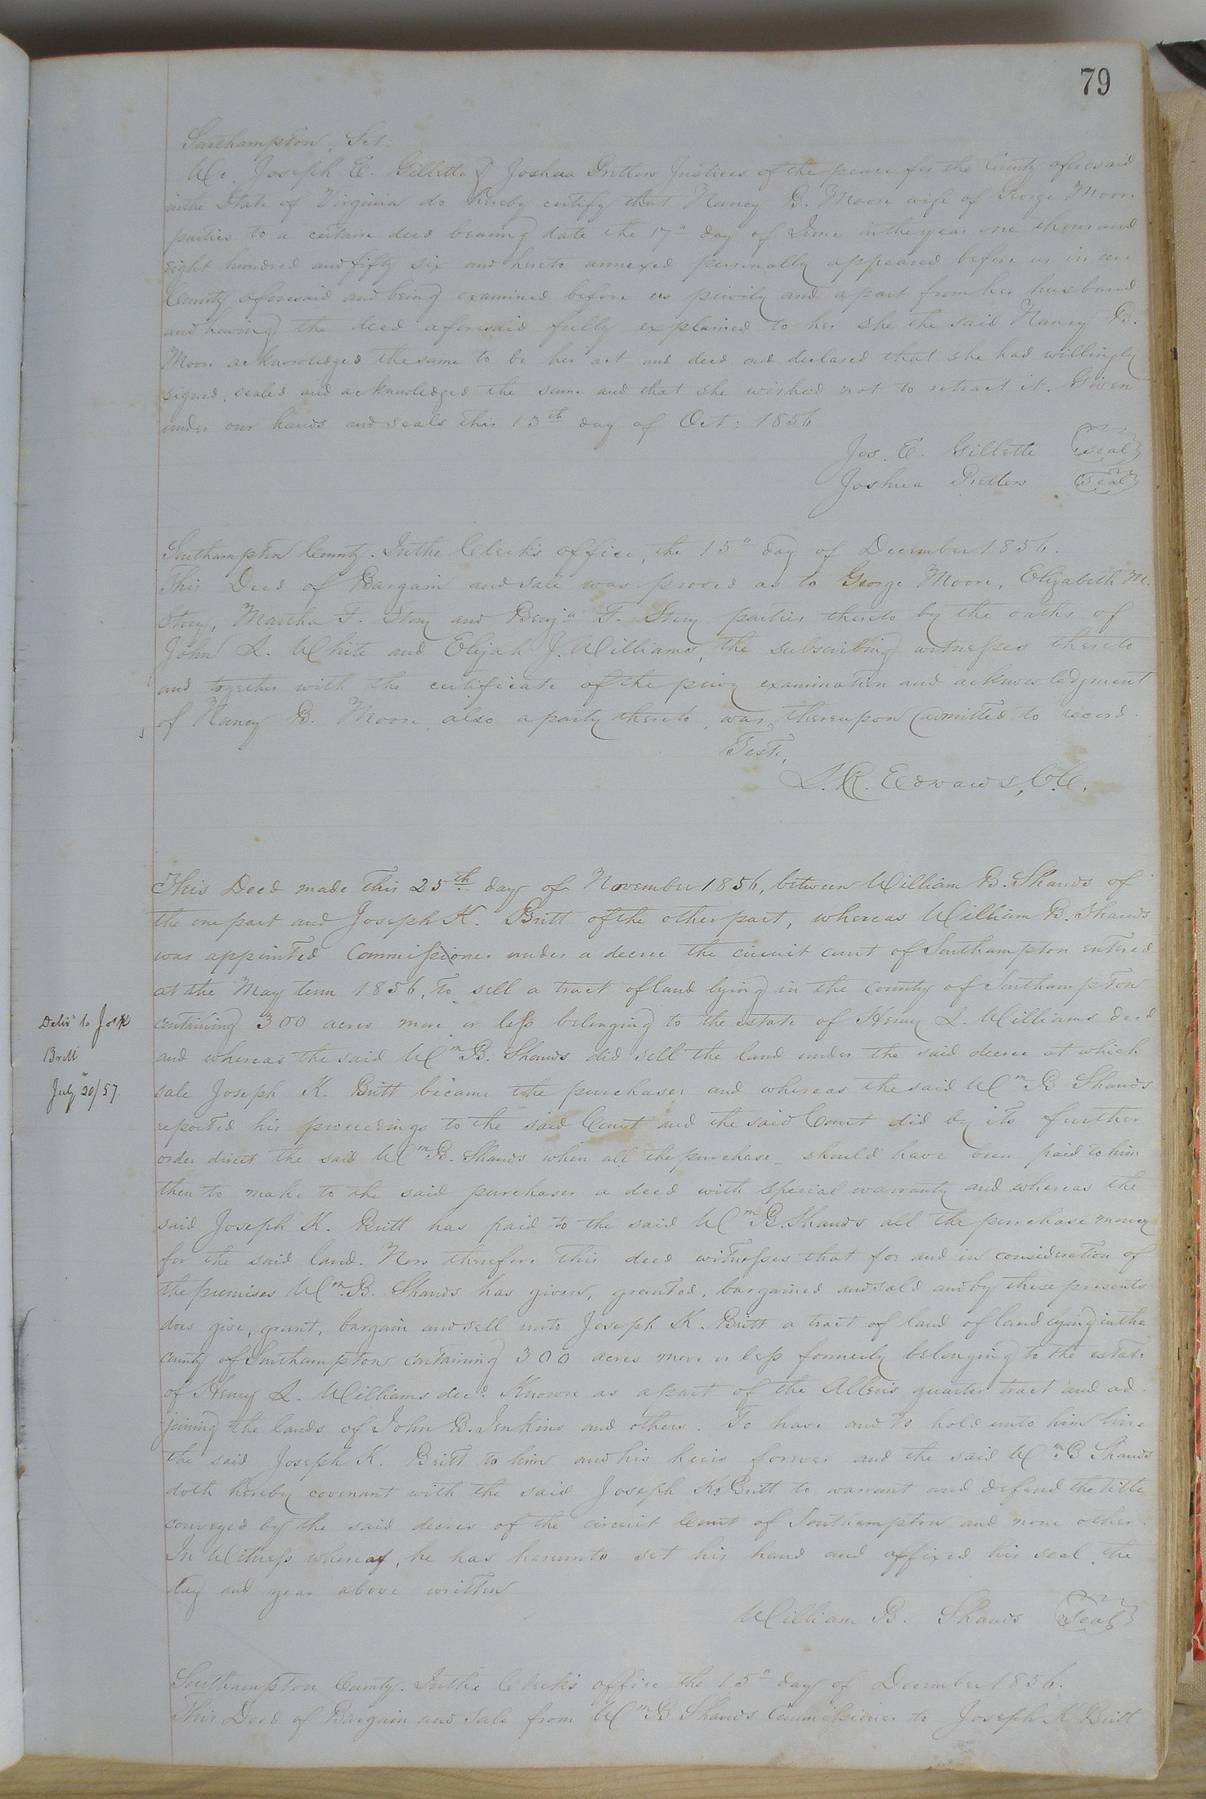 79
Southampton, Sct:
We, Joseph E. Gillette & Joshua Pretlow Justices of the peace for the County aforesaid
in the State of Virginia do hereby certify that Nancy B. Moore wife of George Moore
parties to a certain deed bearing date the 17th day of June in the year one thousand
eight hundred and fifty six and hereto annexed personally appeared before us in our
County aforesaid and being examined before us privily and apart from her husband
and having the deed aforesaid fully explained to her she the said Nancy B.
Moore acknowledged the same to be her act and deed and declared that she had willingly
signed, sealed and acknowledged the same and that she wished not to retract it. Given
under our hands and seals this 13th day of Oct: 1856
Jos. E. Gillette Seal
Joshua Pretlow Seal
Southampton County. In the Clerk's office, the 15" day of December 1856.
This Deed of Bargain and sale was proved as to George Moore, Elizabeth M.
Story, Martha F. Story and Benj'n F. Story parties thereto by the oaths of
John L. White and Elijah J. Williams, the subscribing witnesses thereto
and together with the certificate of the privy examination and acknowledgment
of Nancy B. Moore also a party thereto, was thereupon admitted to record.
Teste,
L. R. Edwards, C.C.
This Deed made this 25th day of November 1856, between William B. Shands of
the one part and Joseph K. Britt of the other part, whereas William B. Shands
was appointed Commissioner under a decree the circuit court of Southampton entered
at the May term 1856, to sell a tract of land lying in the county of Southampton
containing 300 acres more or less belonging to the estate of Henry L. Williams dec'd
and whereas the said Wm B. Shands did sell the land under the said decree at which
sale Joseph K. Britt became the purchaser and whereas the said Wm B Shands
reported his proceedings to the said Court and the said Court did by its further
order direct the said Wm B. Shands when all the purchase should have been paid to him
then to make to the said purchaser a deed with special warranty and whereas the
said Joseph K. Britt has paid to the said Wm B. Shands all the purchase money
for the said land. Now therefore this deed witnesses that for and in consideration of
the premises Wm B. Shands has given, granted, bargained and sold and by these presents
does give, grant, bargain and sell unto Joseph K. Britt a tract of land of land lying in the
county of Southampton containing 300 acres more or less formerly belonging to the estate
of Henry L. Williams dec'd Known as a part of the Allen's quarter tract and ad-
joining the lands of John B. Jenkins and others. To have and to hold unto him
the said Joseph K. Britt to him and his heirs forever and the said Wm B Shands
doth hereby covenant with the said Joseph K. Britt to warrant and defend the title
conveyed by the said decree of the circuit Court of Southampton and none other.
In Witness whereof, he has hereunto set his hand and affixed his seal the
day and year above written
William B. Shands Seal
Deliv'd to Jos K
Britt
July 20/57
Southampton County. In the Clerk's office the 15" day of December 1856.
This Deed of Bargain and Sale from Wm B Shands Commissioner to Joseph K Britt